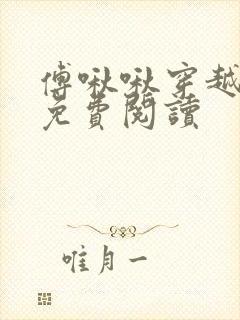 傅啾啾穿越
免費閱讀
唯月一